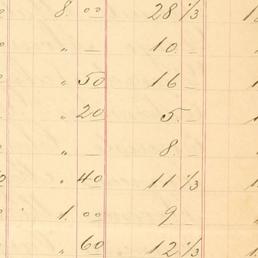 8. 00 28 1/3
" — 10 —
" 50 16 —
" 20 5 —
" — 8 —
" 40 11 1/3
1. 00 9 —
" 60 12 1/3